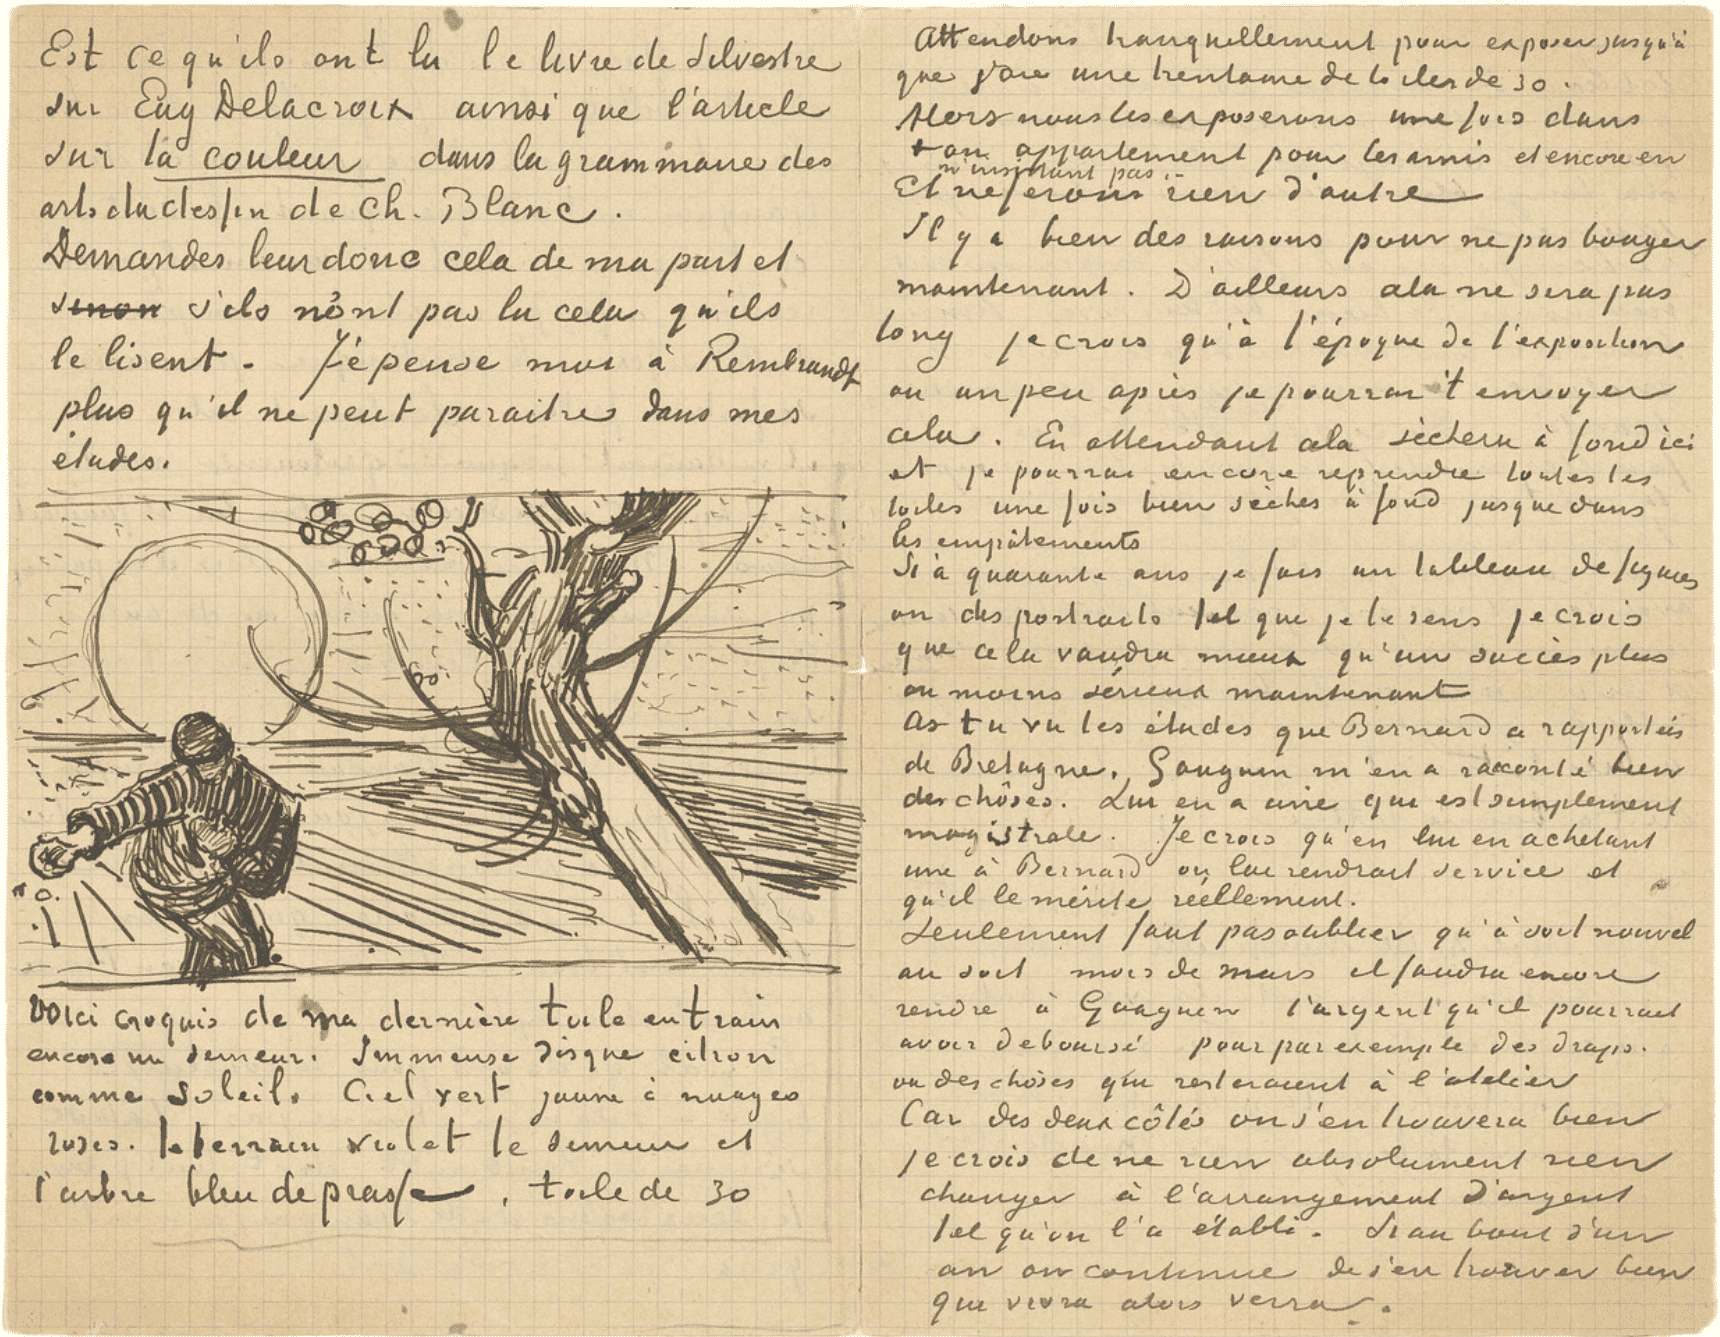 Est ce qu'ils ont lu le livre de Silvestre
sur Eug Delacroix ainsi que l'article
sur la couleur dans la grammaire des
arts du dessin de Ch. Blanc.
Demandes leur donc cela de ma part et
sinon s'ils n'ont pas lu cela qu'ils
le lisent. J'y pense moi à Rembrandt
plus qu'il ne peut paraitre dans mes
études.
Voici croquis de ma dernière toile en train
encore un semeur. Immense disque citron
comme soleil. Ciel vert jaune à nuages
roses. le terrain violet le semeur et
l'arbre bleu de prusse. toile de 30
Attendons tranquillement pour exposer jusqu'à
que j'aie une trentaine de toiles de 30.
Alors nous les exposerons une fois dans
ton appartement pour les amis et encore en
n'insistant pas.
Et ne ferons rien d'autre
Il y a bien des raisons pour ne pas bouger
maintenant. D'ailleurs cela ne sera pas
long je crois qu'à l'époque de l'exposition
ou un peu après je pourrai t'envoyer
cela. En attendant cela sèchera à fond ici
et je pourrai encore reprendre toutes les
toiles une fois bien sèches à fond jusque dans
les empâtements
Si à quarante ans je fais un tableau de figures
ou des portraits tel que je le sens je crois
que cela vaudra mieux qu'un succès plus
ou moins sérieux maintenant
As tu vu les études que Bernard a rapportées
de Bretagne. Gauguin m'en a raconté bien
des chôses. Lui en a une qui est simplement
magistrale. Je crois qu'en lui en achetant
une à Bernard on lui rendrait service et
qu'il le mérite réellement.
Seulement faut pas oublier qu'à soit nouvel
an soit mois de mars il faudra encore
rendre à Gauguin l'argent qu'il pourrait
avoir deboursé pour par exemple des draps.
ou des choses qui resteraient à l'atelier
Car des deux côtés on s'en trouvera bien
je crois de ne rien absolument rien
changer à l'arrangement d'argent
tel qu'on l'a établi. Si au bout d'un
an on continue de s'en trouver bien
qui vivra alors verra.